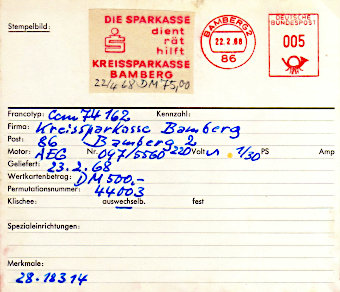 Stempelbild:
DIE SPARKASSE
dient
rät
hilft
KREISSPARKASSE
BAMBERG
22/4 68 DM 75,00
BAMBERG 2
22.2.68
86
DEUTSCHE
BUNDESPOST
005
Francotyp: Ccm 74 162 Kennzahl:
Firma: Kreissparkasse Bamberg
Post: 86 Bamberg 2
Motor: AEG Nr. 047/5560 220 Volt ~ 1/30 PS Amp
Geliefert: 23.2.68
Wertkartenbetrag: DM 500,-
Permutationsnummer: 44003
Klischee: auswechselb. fest
Spezialeinrichtungen:
Merkmale:
28-18314